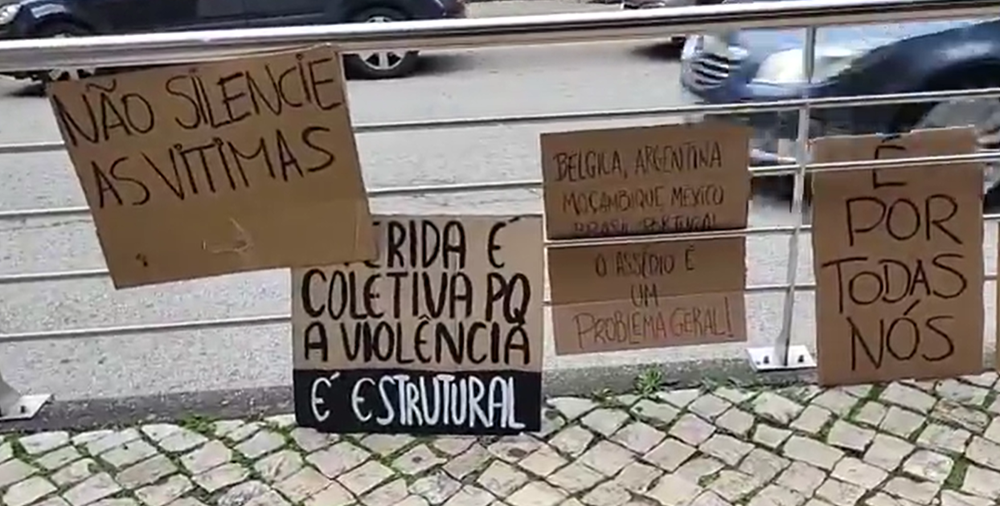 NÃO SILENCIE
AS VITIMAS
ERIDA É
COLETIVA PQ
A VIOLÊNCIA
É ESTRUTURAL
BELGICA, ARGENTINA
MOÇAMBIQUE MEXICO
BRASIL PORTUGAL
O ASSÉDIO É
UM
PROBLEMA GERAL!
É
POR
TODAS
NÓS